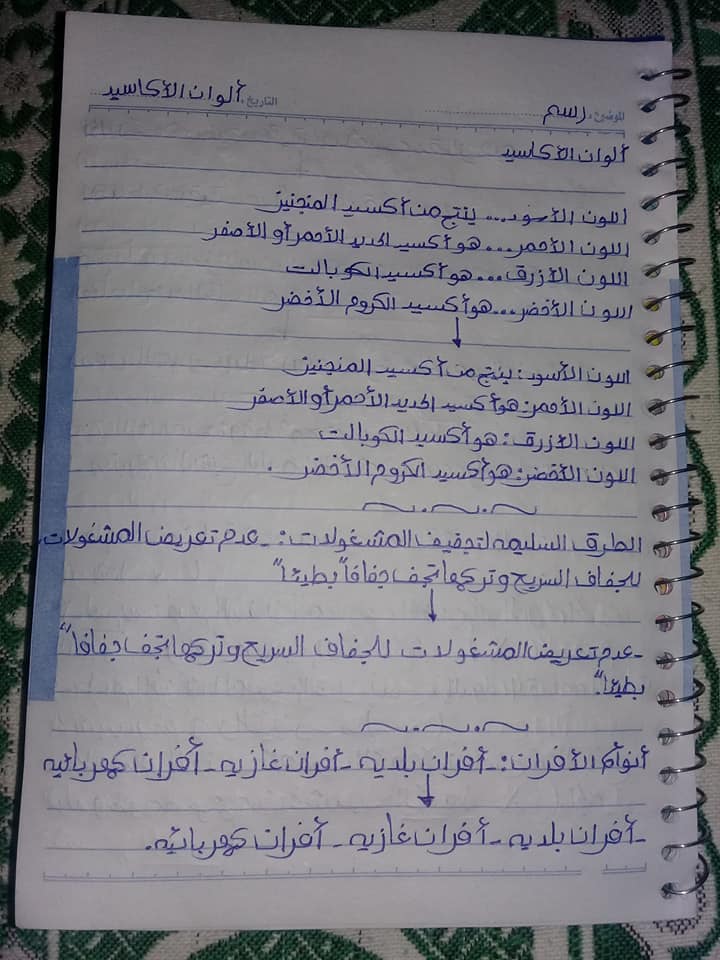 الموضوع: رسم التاريخ: ألوان الأكاسيد
ألوان الأكاسيد
اللون الأسود... ينتج من أكسيد المنجنيز
اللون الأحمر... هو أكسيد الحديد الأحمر أو الأصفر
اللون الأزرق... هو أكسيد الكوبالت
اللون الأخضر... هو أكسيد الكروم الأخضر
اللون الأسود: ينتج من أكسيد المنجنيز
اللون الأحمر: هو أكسيد الحديد الأحمر أو الأصفر
اللون الأزرق: هو أكسيد الكوبالت
اللون الأخضر: هو أكسيد الكروم الأخضر.
الطرق السليمه لتجفيف المشغولات: - عدم تعريض المشغولات
للجفاف السريع وتركها تجف جفافا" بطيئا"
- عدم تعريض المشغولات للجفاف السريع وتركها تجف جفافا"
بطيئا".
أنواع الأفران: - أفران بلديه - أفران غازيه - أفران كهربائيه
- أفران بلديه - أفران غازيه - أفران كهربائيه.